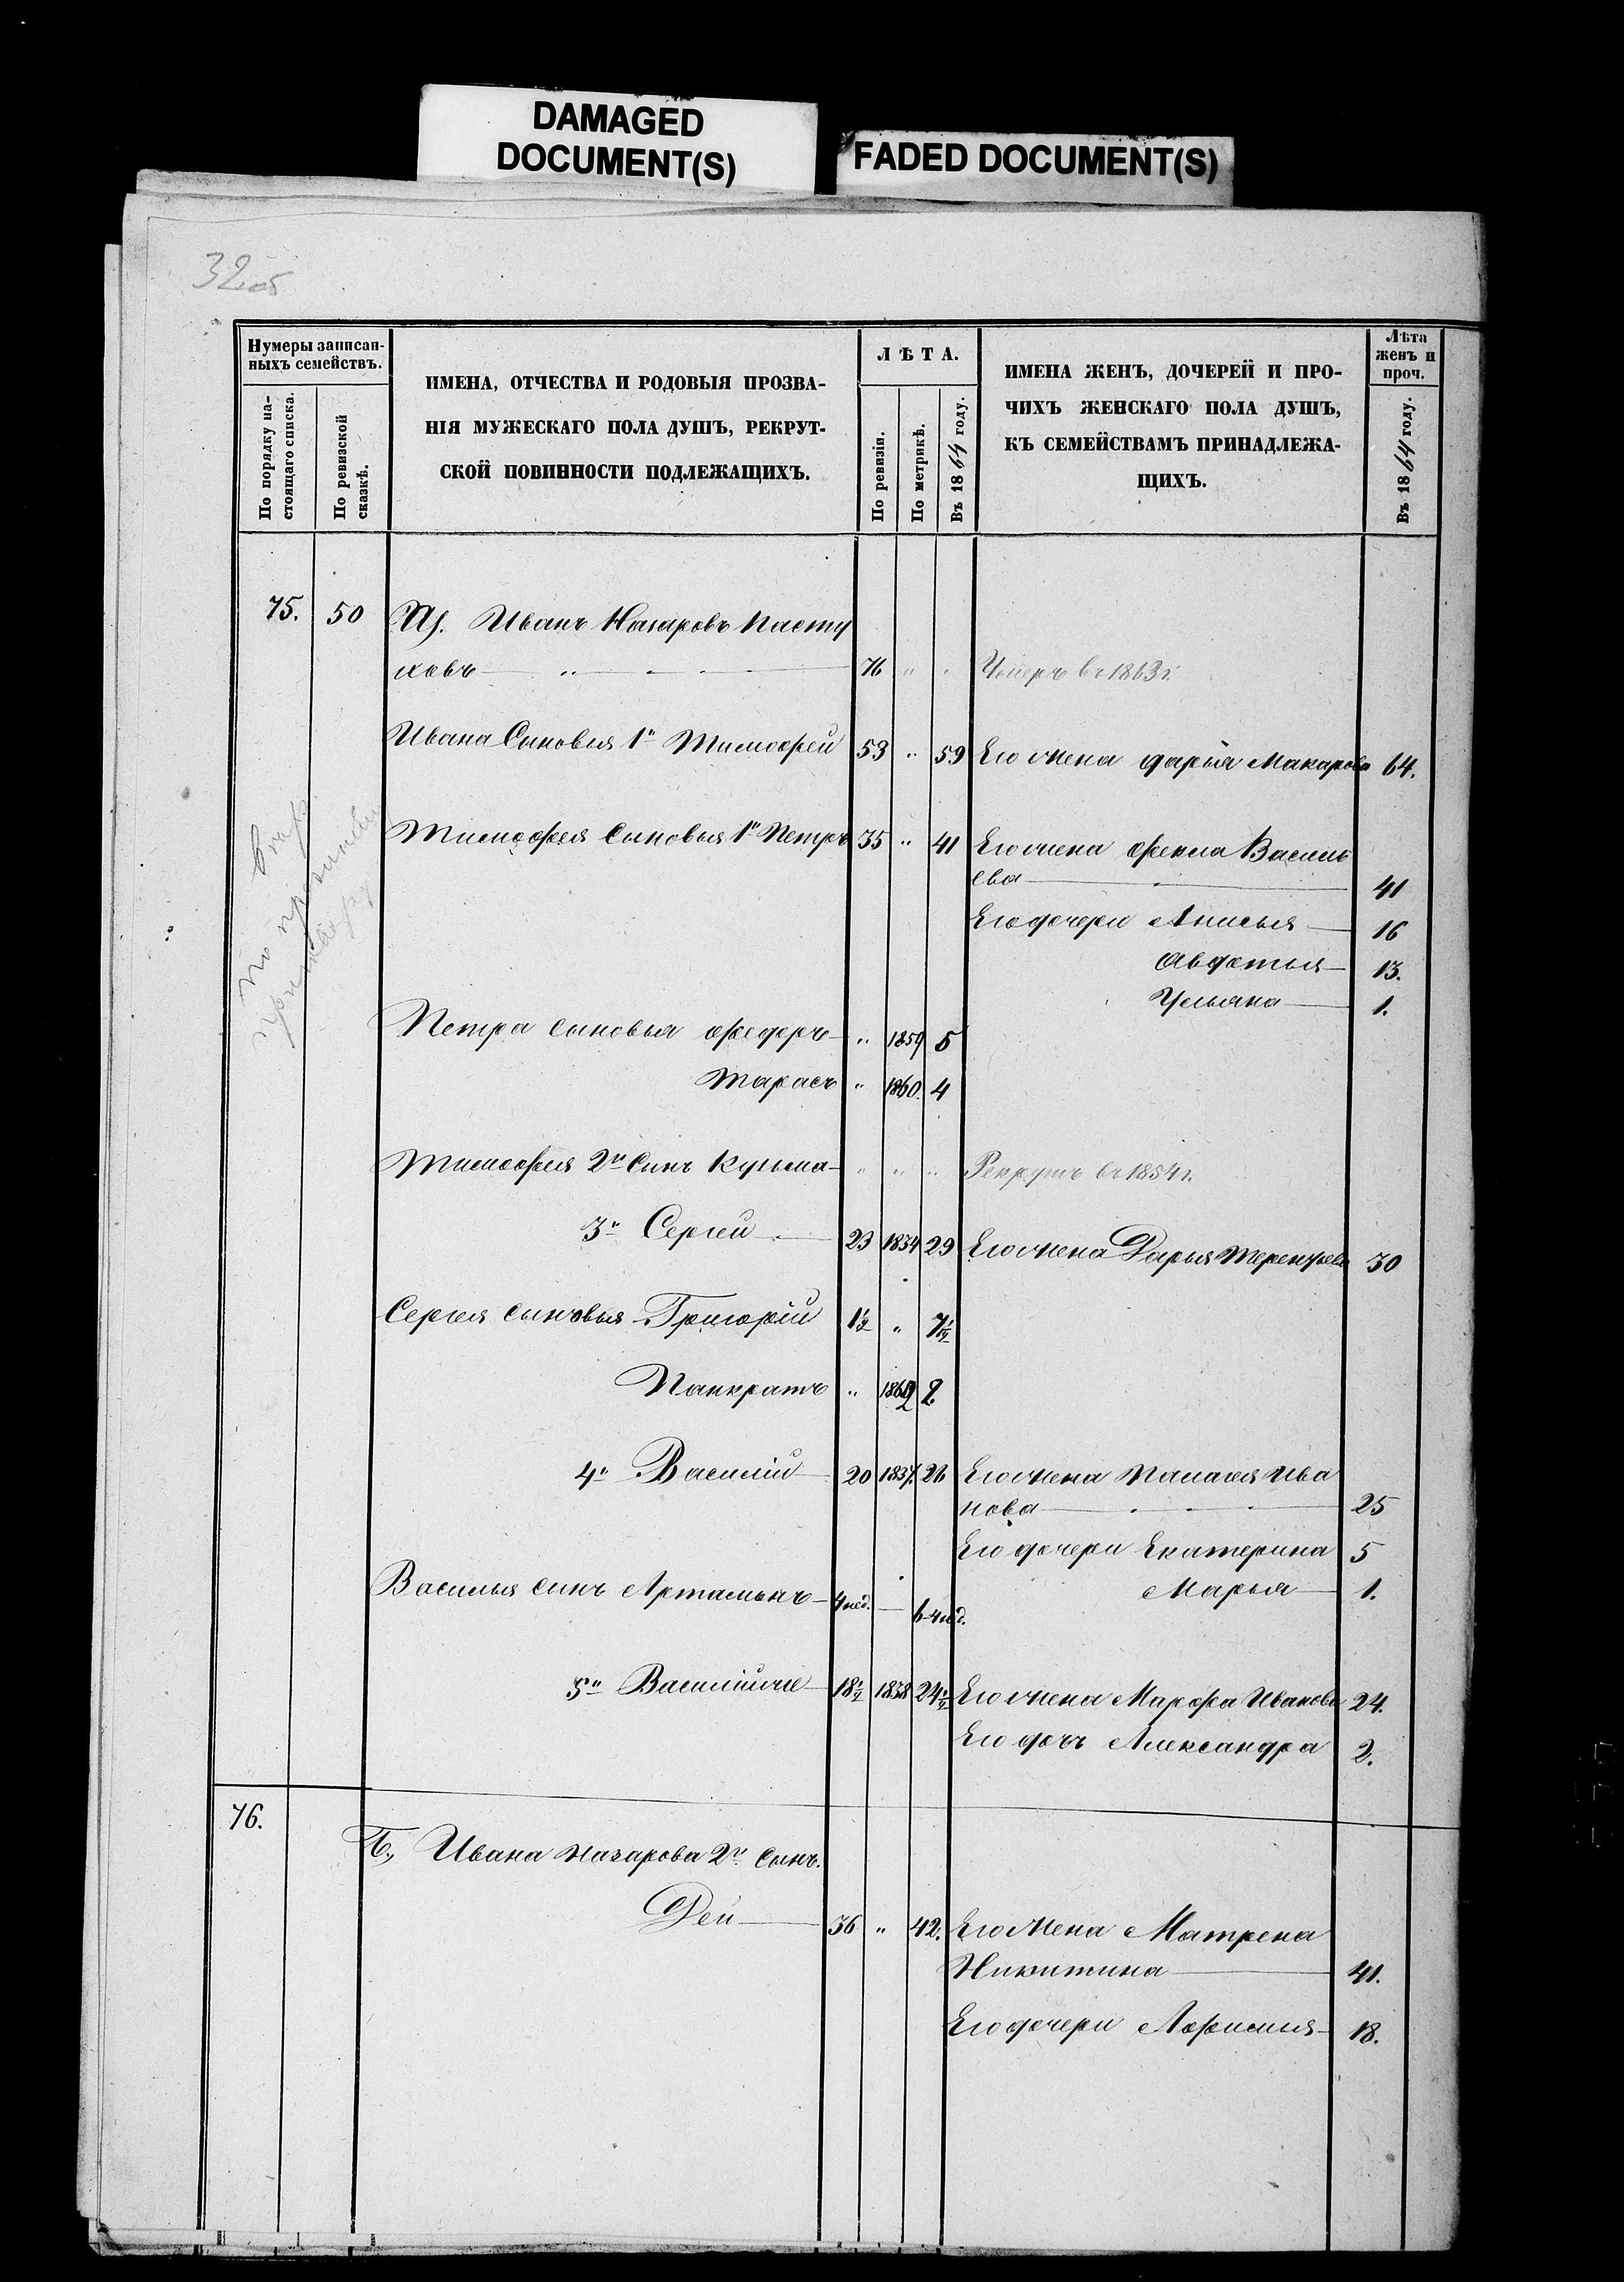 DAMAGED
DOCUMENT(S)
FADED DOCUMENT(S)
32об
Нумеры записан-
ныхъ семействъ.
По порядку на-
стоящаго списка.
По ревизской
сказкѣ.
ИМЕНА, ОТЧЕСТВА И РОДОВЫЯ ПРОЗВА-
НІЯ МУЖЕСКАГО ПОЛА ДУШЪ, РЕКРУТ-
СКОЙ ПОВИННОСТИ ПОДЛЕЖАЩИХЪ.
ЛѢТА.
По ревизіи.
По метрикѣ.
Въ 1864 году.
ИМЕНА ЖЕНЪ, ДОЧЕРЕЙ И ПРО-
ЧИХЪ ЖЕНСКАГО ПОЛА ДУШЪ,
КЪ СЕМЕЙСТВАМЪ ПРИНАДЛЕЖА-
ЩИХЪ.
Лѣта
женъ и
проч.
Въ 1864 году.
75. 50 Иванъ Назаровъ Пасту
ховъ — " — 76 " " Умеръ въ 1863 г.
Ивана Сыновья 1й Тимофей 53 " 59 Его жена дарья Макарова 64.
Тимофея сыновья 1й Петръ 35 " 41 Его жена фекла Василь
ева — 41
Его дочери Анисья — 16
Авдотья — 13.
Ульяна — 1.
Петра сыновья федоръ — " 1859 5
Тарасъ " 1860. 4
Тимофея 2й Сынъ Кузьма — " " " Рекрутъ въ 1854 г.
3й Сергей — 23 1834 29 Его жена Дарья Терентьева 30
Сергея сыновья Григорій 1½ " 7½
Панкратъ " 1862 2
4й Василій — 20 1837. 26 Его жена Палагея Ива
нова — 25
Его дочери Екатерина 5
Марья — 1.
Василья сынъ Артамонъ — 4 нед. — 6-4 нед.
5й Василій же — 18½ 1838 24½ Его жена Марфа Иванова 24.
Его дочь Александра 2.
76.
Б., Ивана Назарова 2й сынъ.
Фей — 36 " 42. Его жена Матрена
Никитина — 41.
Его дочери Афимья — 18.